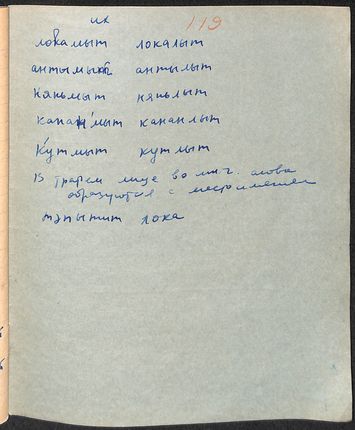 их 119
локамыт локалыт
антымыт антылыт
няньмыт няньлыт
кананмыт кананлыт
кутмыт кутлыт
В третьем лице во мн. г. слова
образуются с местоимением
тэпытит лока